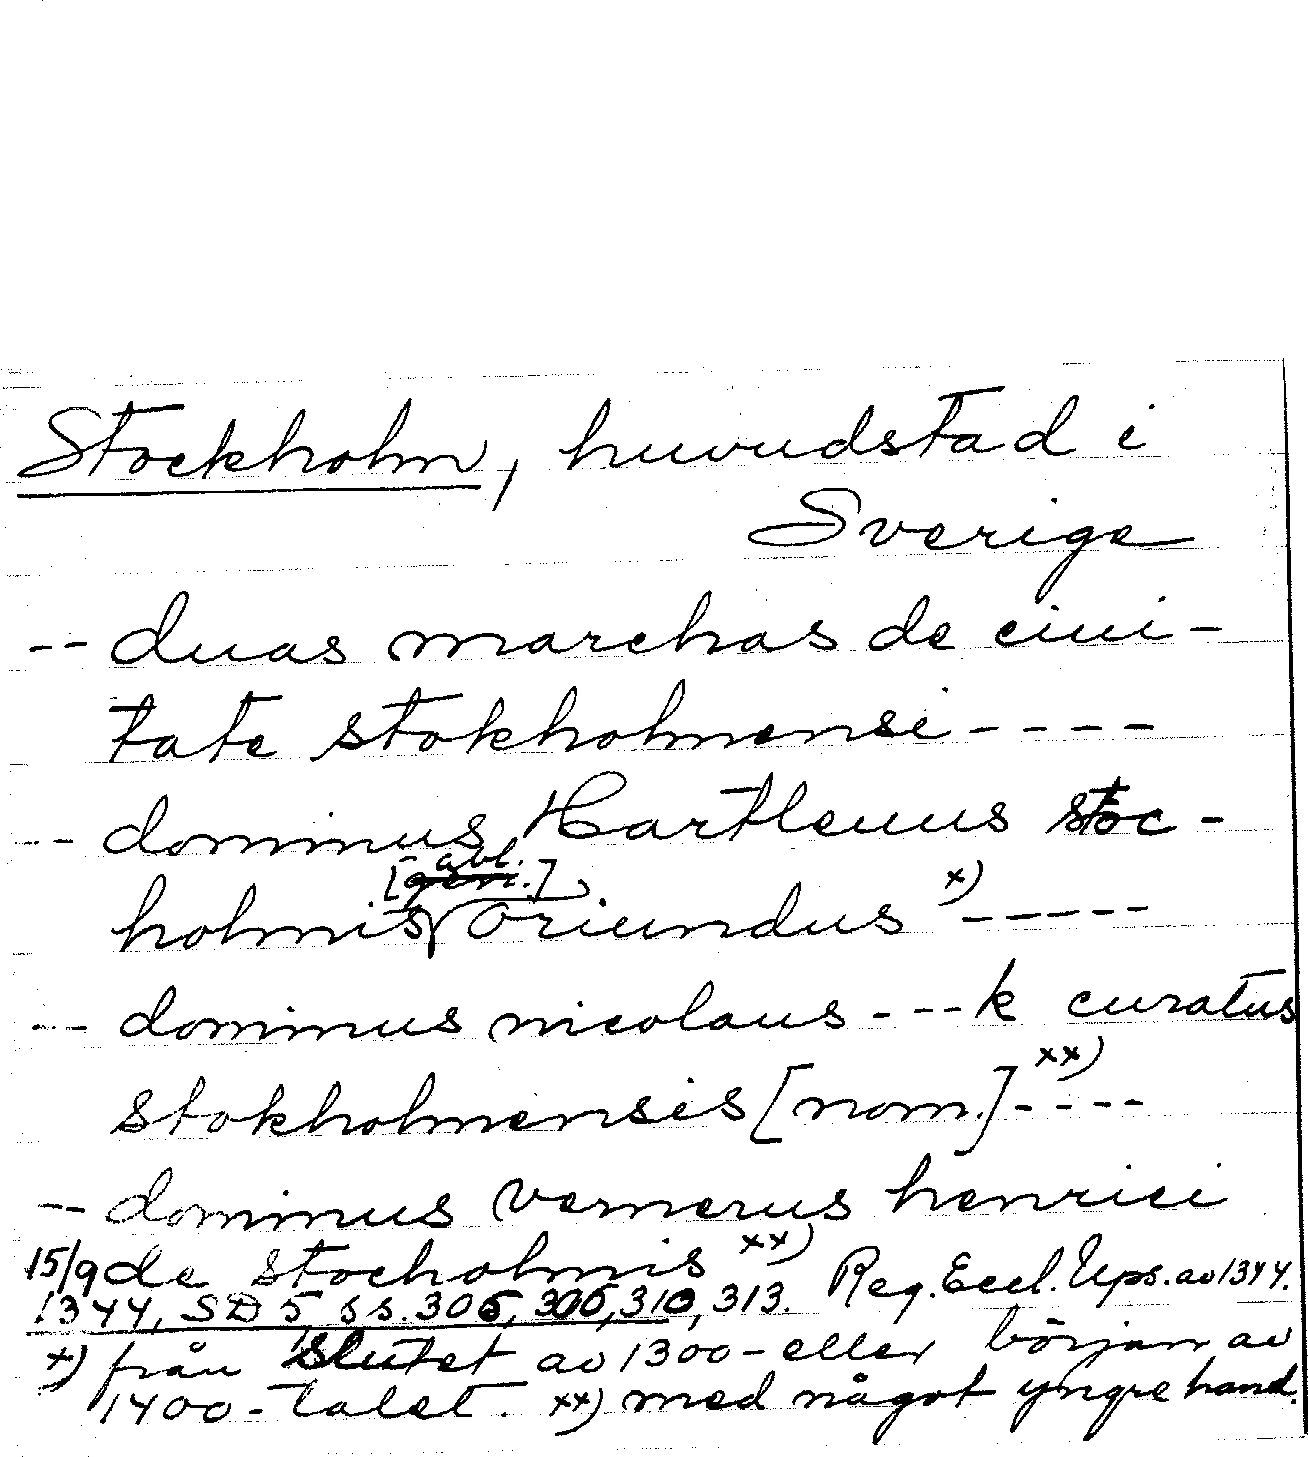 Stockholm, huvudstad i
Sverige
-- duas marchas de ciui-
tate stokholmensi ----
-- dominus Hartleuus stoc-
[abl.]
holmis oriundus x) -----
-- dominus nicolaus ---k curatus
stokholmensis [nom.] xx) ----
-- dominus vernerus henrici
15/9 de stocholmis xx) Reg. Eccl. Ups. av 1344.
1344, SD 5, ss. 305, 306, 310, 313.
x) från slutet av 1300- eller början av
1400-talet. xx) med något yngre hand.